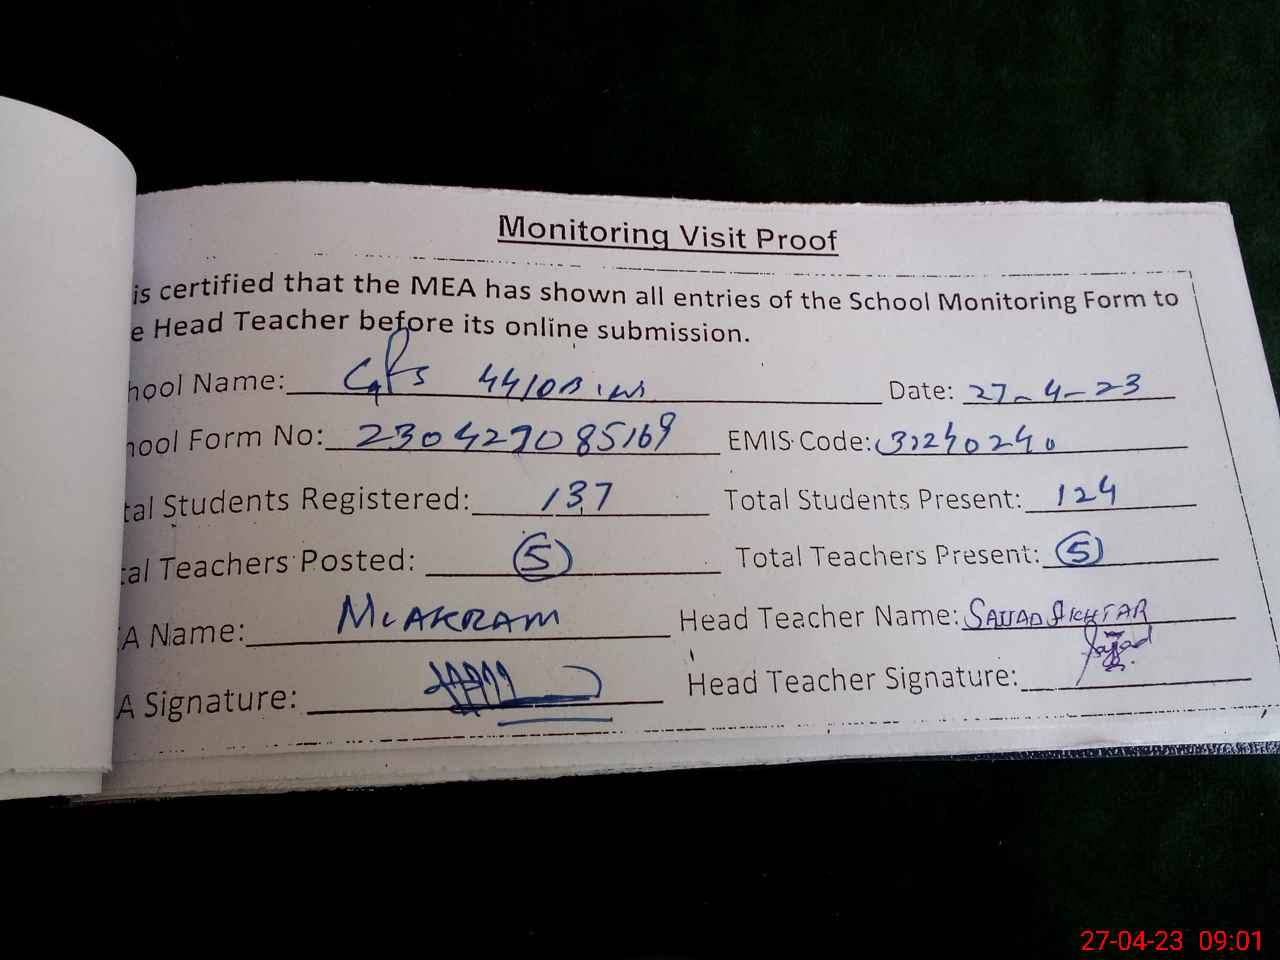 Monitoring Visit Proof
is certified that the MEA has shown all entries of the School Monitoring Form to
e Head Teacher before its online submission.
hool Name: GPS 44/DB Date: 27-4-23
hool Form No: 230427085169 EMIS Code: 31240240
tal Students Registered: 137 Total Students Present: 124
tal Teachers Posted: 5 Total Teachers Present: 5
A Name: M. AKRAM Head Teacher Name: SAJJAD AKHTAR
A Signature: Head Teacher Signature: Sajjad
27-04-23 09:01